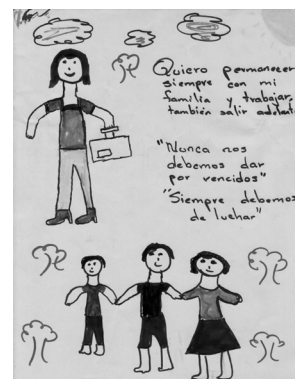 Quiero permanecer
siempre con mi
familia y trabajar,
también salir adelante
"Nunca nos
debemos dar
por vencidos"
"Siempre debemos
de luchar"